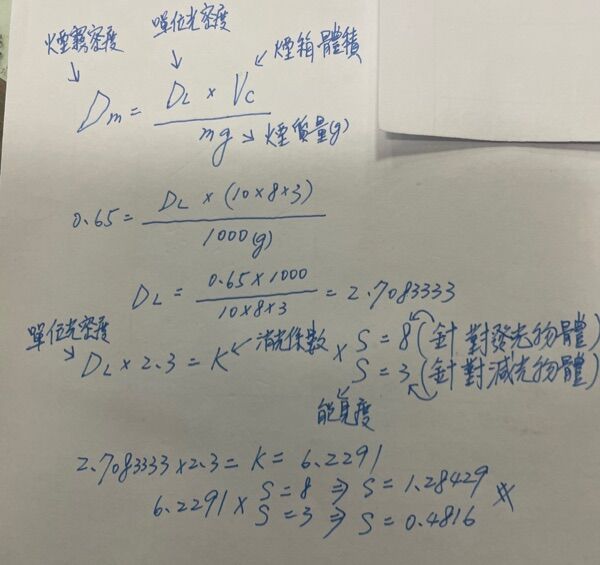 單位光密度
煙霧密度 煙箱體積
Dm = DL × Vc / mg → 煙質量(g)
0.65 = DL × (10×8×3) / 1000(g)
DL = 0.65×1000 / 10×8×3 = 2.7083333
單位光密度 消光係數
DL × 2.3 = K × S = 8 (針對發光物體)
S = 3 (針對減光物體)
能見度
2.7083333×2.3 = K = 6.2291
6.2291 × S = 8 ⇒ S = 1.28429
S = 3 ⇒ S = 0.4816 #